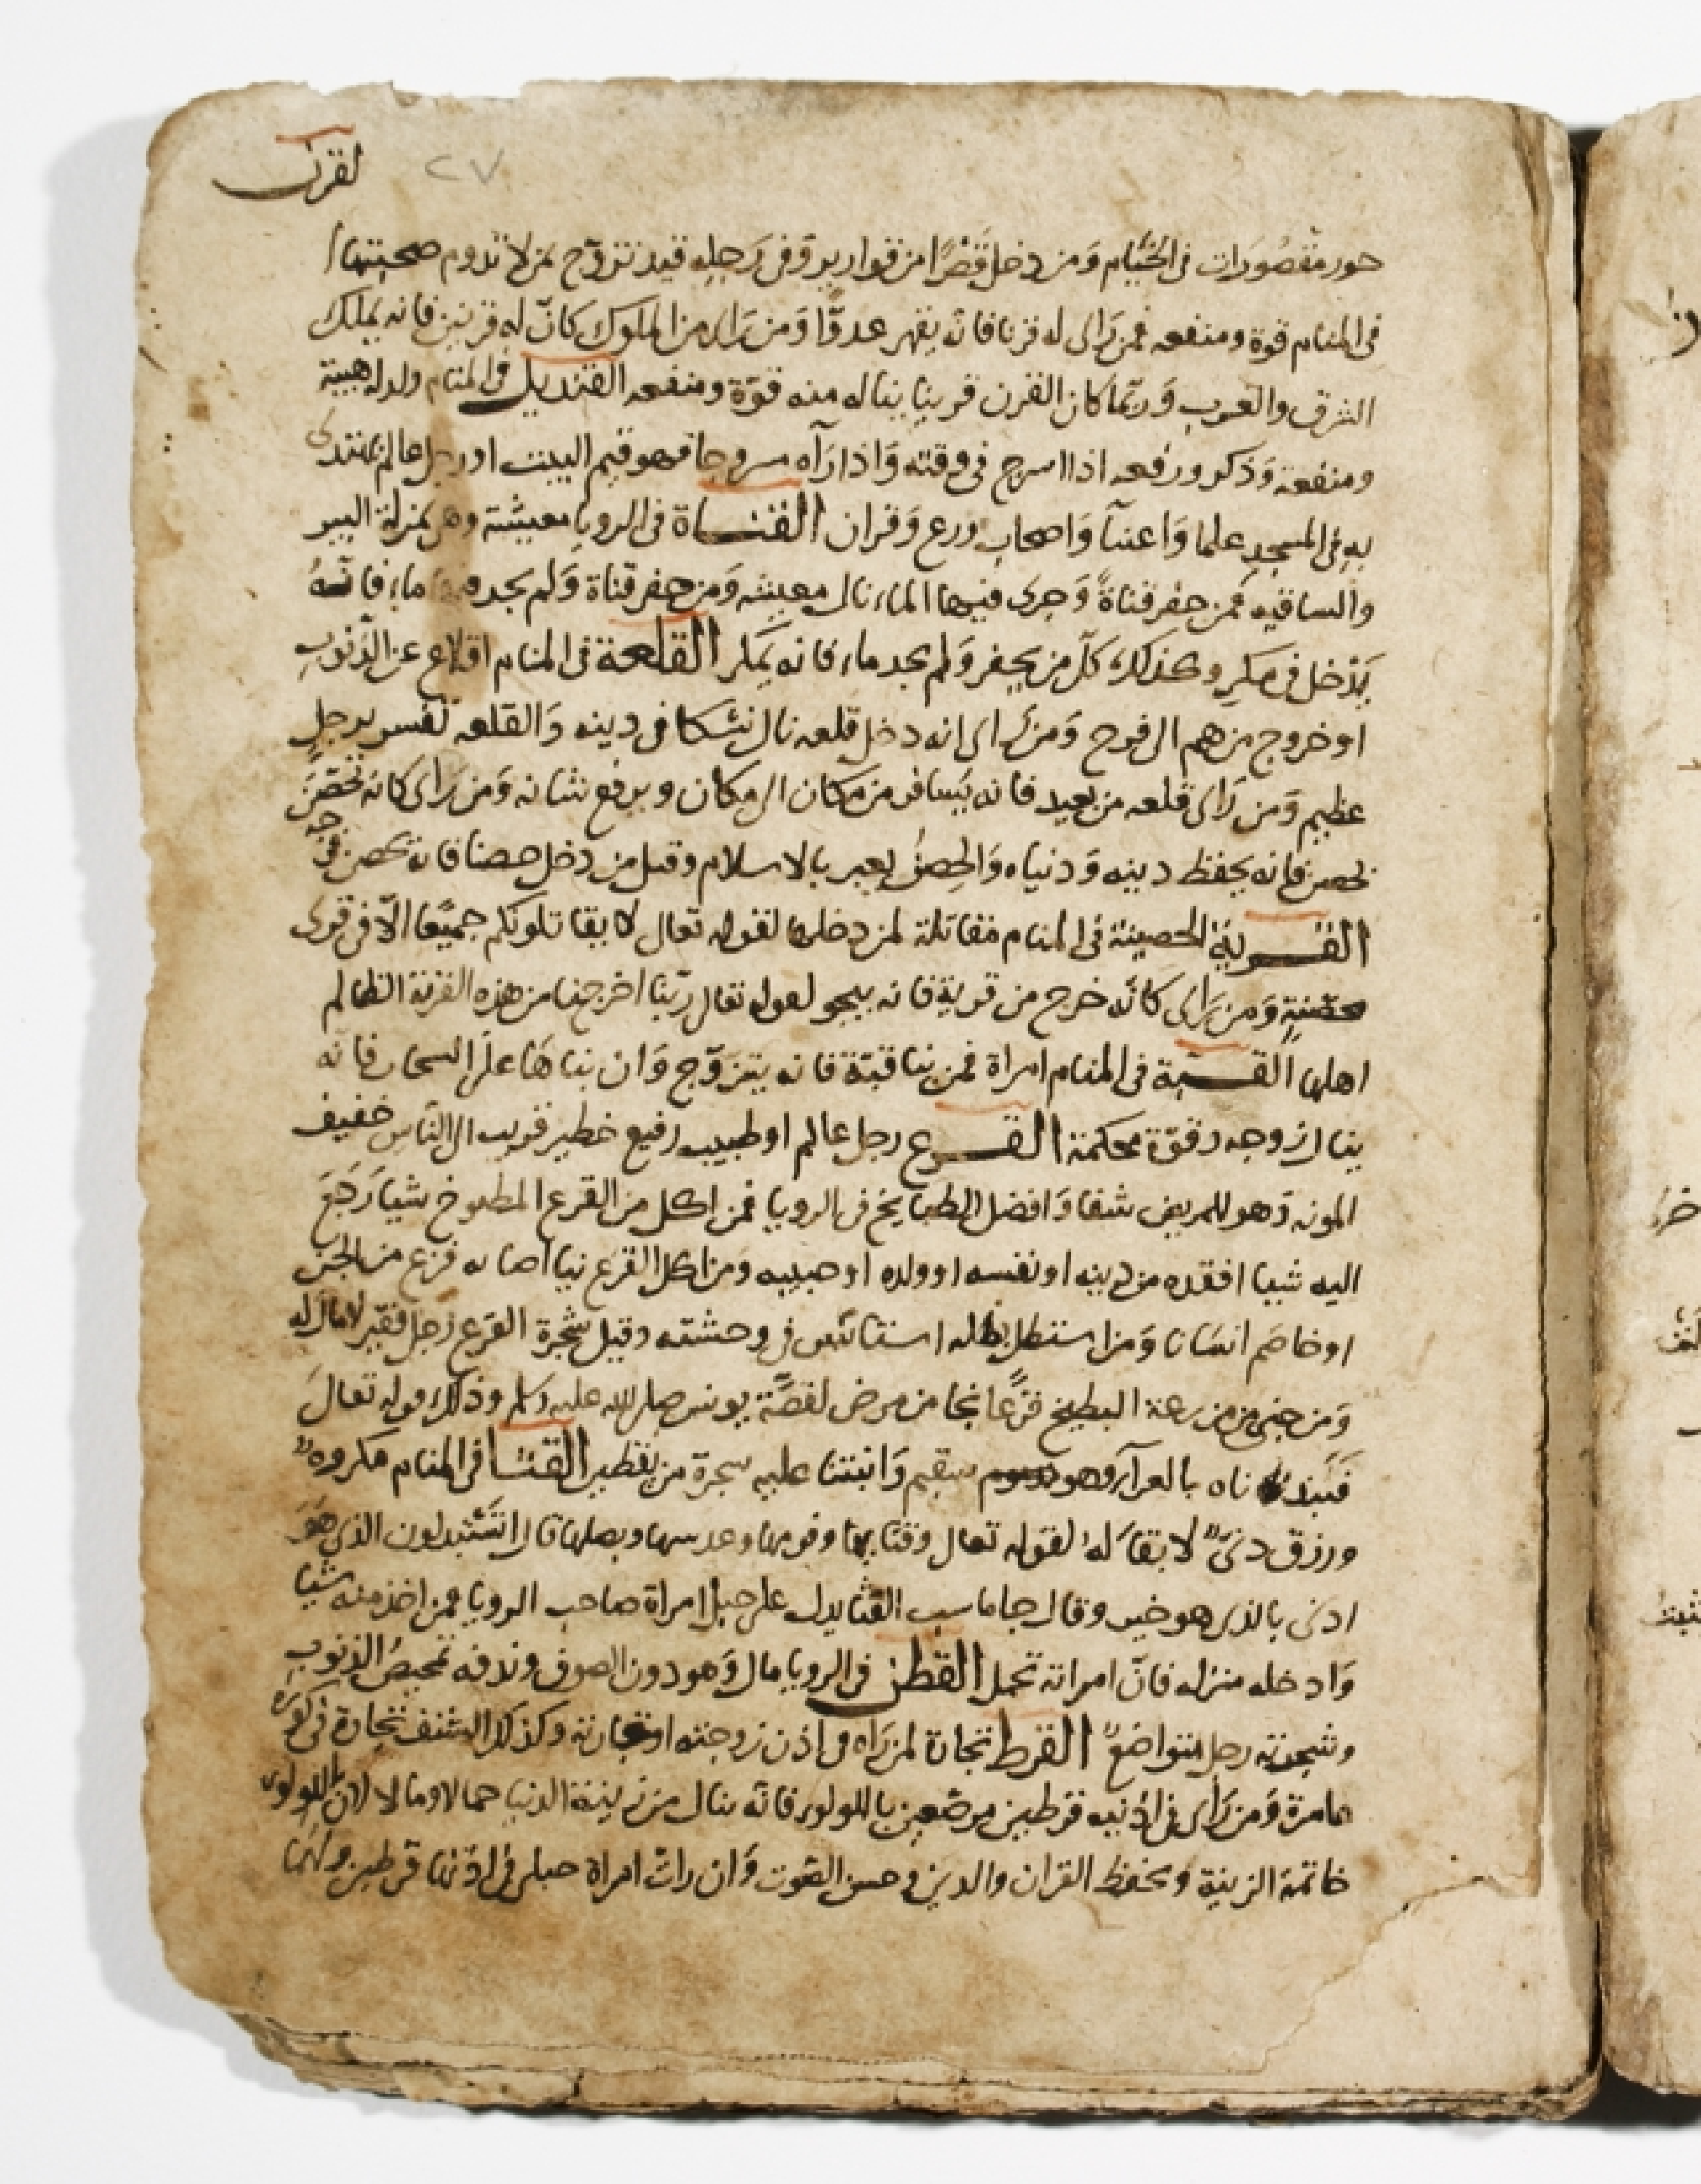 لقرن
٢٧
حور مقصورات في الخيام وَمن دخل قَصْرًا من قوارير وَفي رَجله قيد تزوّج بمن لا تدوم صحبتها
في المنام قوة ومنفعه فمن رَاى له قرنا فانّه يقهر عدوًّا وَمن رَاى من الملوك كانّ له قرنين فانه يملك
الشرق والغرب وَربّما كان القرن قرينا ينال منه قوّة ومنفعه القنديل في المنام ولد له هيبة
ومنفعة وَذكر ورفعه اذا اسرج في وقته وَاذا رَآه مسروجا فهو قيم البيت او رجل عالم يقتدى
به في المسجد علما وَاغنيآ وَاصحاب ورع وَقران القناة في الرويا معيشة وهي بمنزلة البير
والساقيه فمن حفر قناةً وَجرى فيها الماء نال معيشه وَمن حفر قناة وَلم يجد فيها ماء فانّهُ
يَدْخل في مكرٍ وكذلك كلّ من يحفر وَلم يجد ماء فانه يَمكر القلعة في المنام اقلاع عن الذّنوب
او خروج من هم الى فرج وَمن رَاى انه دخل قلعه نال نسُكا في دينه وَالقلعه تفسر برجلٍ
عظيم وَمن رَاى قلعه من بعيد فانه يَسافر من مكان الى مكان ويرفع شانه وَمن رَاى كانه تحصّنَ
بحصن فانه يحفظ دينه وَدنياه وَالحِصنُ يعبر بالاسلام وقيل من دخل حصنا فانه يحصن فرجه
القريَة الحصينة في المنام مقاتلة لمن دخلها لقوله تعالى لا يقاتلونكم جميعًا الّا في قرى
محصّنةٍ وَمن رَاى كانّه خرج من قريةٍ فانه ينجو لقوله تعالى ربّنا اخرجنا من هذه القرية الظالم
اهلها القبة في المنام امراة فمن بنا قبّة فانه يتزوّج وَان بناهَا على السحاب فانه
ينال درجه وقوّة محكمة القرع رجل عالم او طبيب رفيع خطير قريب الى النّاس خفيف
المونه وَهو للمريض شفا وَافضل الطبايخ في الرويا فمن اكل من القرع المطبوخ شيا رَجَعَ
اليه شيا افقده من دينه او نفسه او ولده او حبيبه وَمن اكل القرع نيا اصابه فزع من الجن
او خاصَم انسَانا وَمن استظل بظله استانس في وحشته وقيل شجرة القرع رَجل فقير لا مال له
وَمن جنى من مزرعة البطيخ قرْعًا نجا من مرض لقصَّة يونس صلى الله عليه وسلم وذلك قوله تعالىَ
فَنَبذناه بالعرآء وهو سقيم وَانبتنا عليه شجرة من يقطين القثا في المنام مكروهٌ
ورزق دنىٌ لا بقا لهُ لقوله تعالى وقثايها وفومها وعدسها وبصلها قال اتستبدلون الذي هوَ
ادنى بالذى هو خير وقال جاماسب القثا يدل على حبل امراة صاحب الرويا فمن اخذ منه شيا
وَادخله منزله فانّ امراته تحمل القطن في الرويا مال وَهو دون الصوف وندفه تمحيصُ الذنوب
وشجرته رجل متواضعٌ القرط تجارة لمن رَاه في اذن زوجته او تجارته وكذلك الشنف تجارة في كورة
عامرة وَمن رَأى في اذنيه قرطين مرصّعين باللولو فانّه ينال من زينة الدنيا جمالا ومالا لان اللولو
خاتمة الزينة ويحفظ القران والدين وحسن الصّوت وَان رات امراة حبلى في اذنها قرطين ولهَما